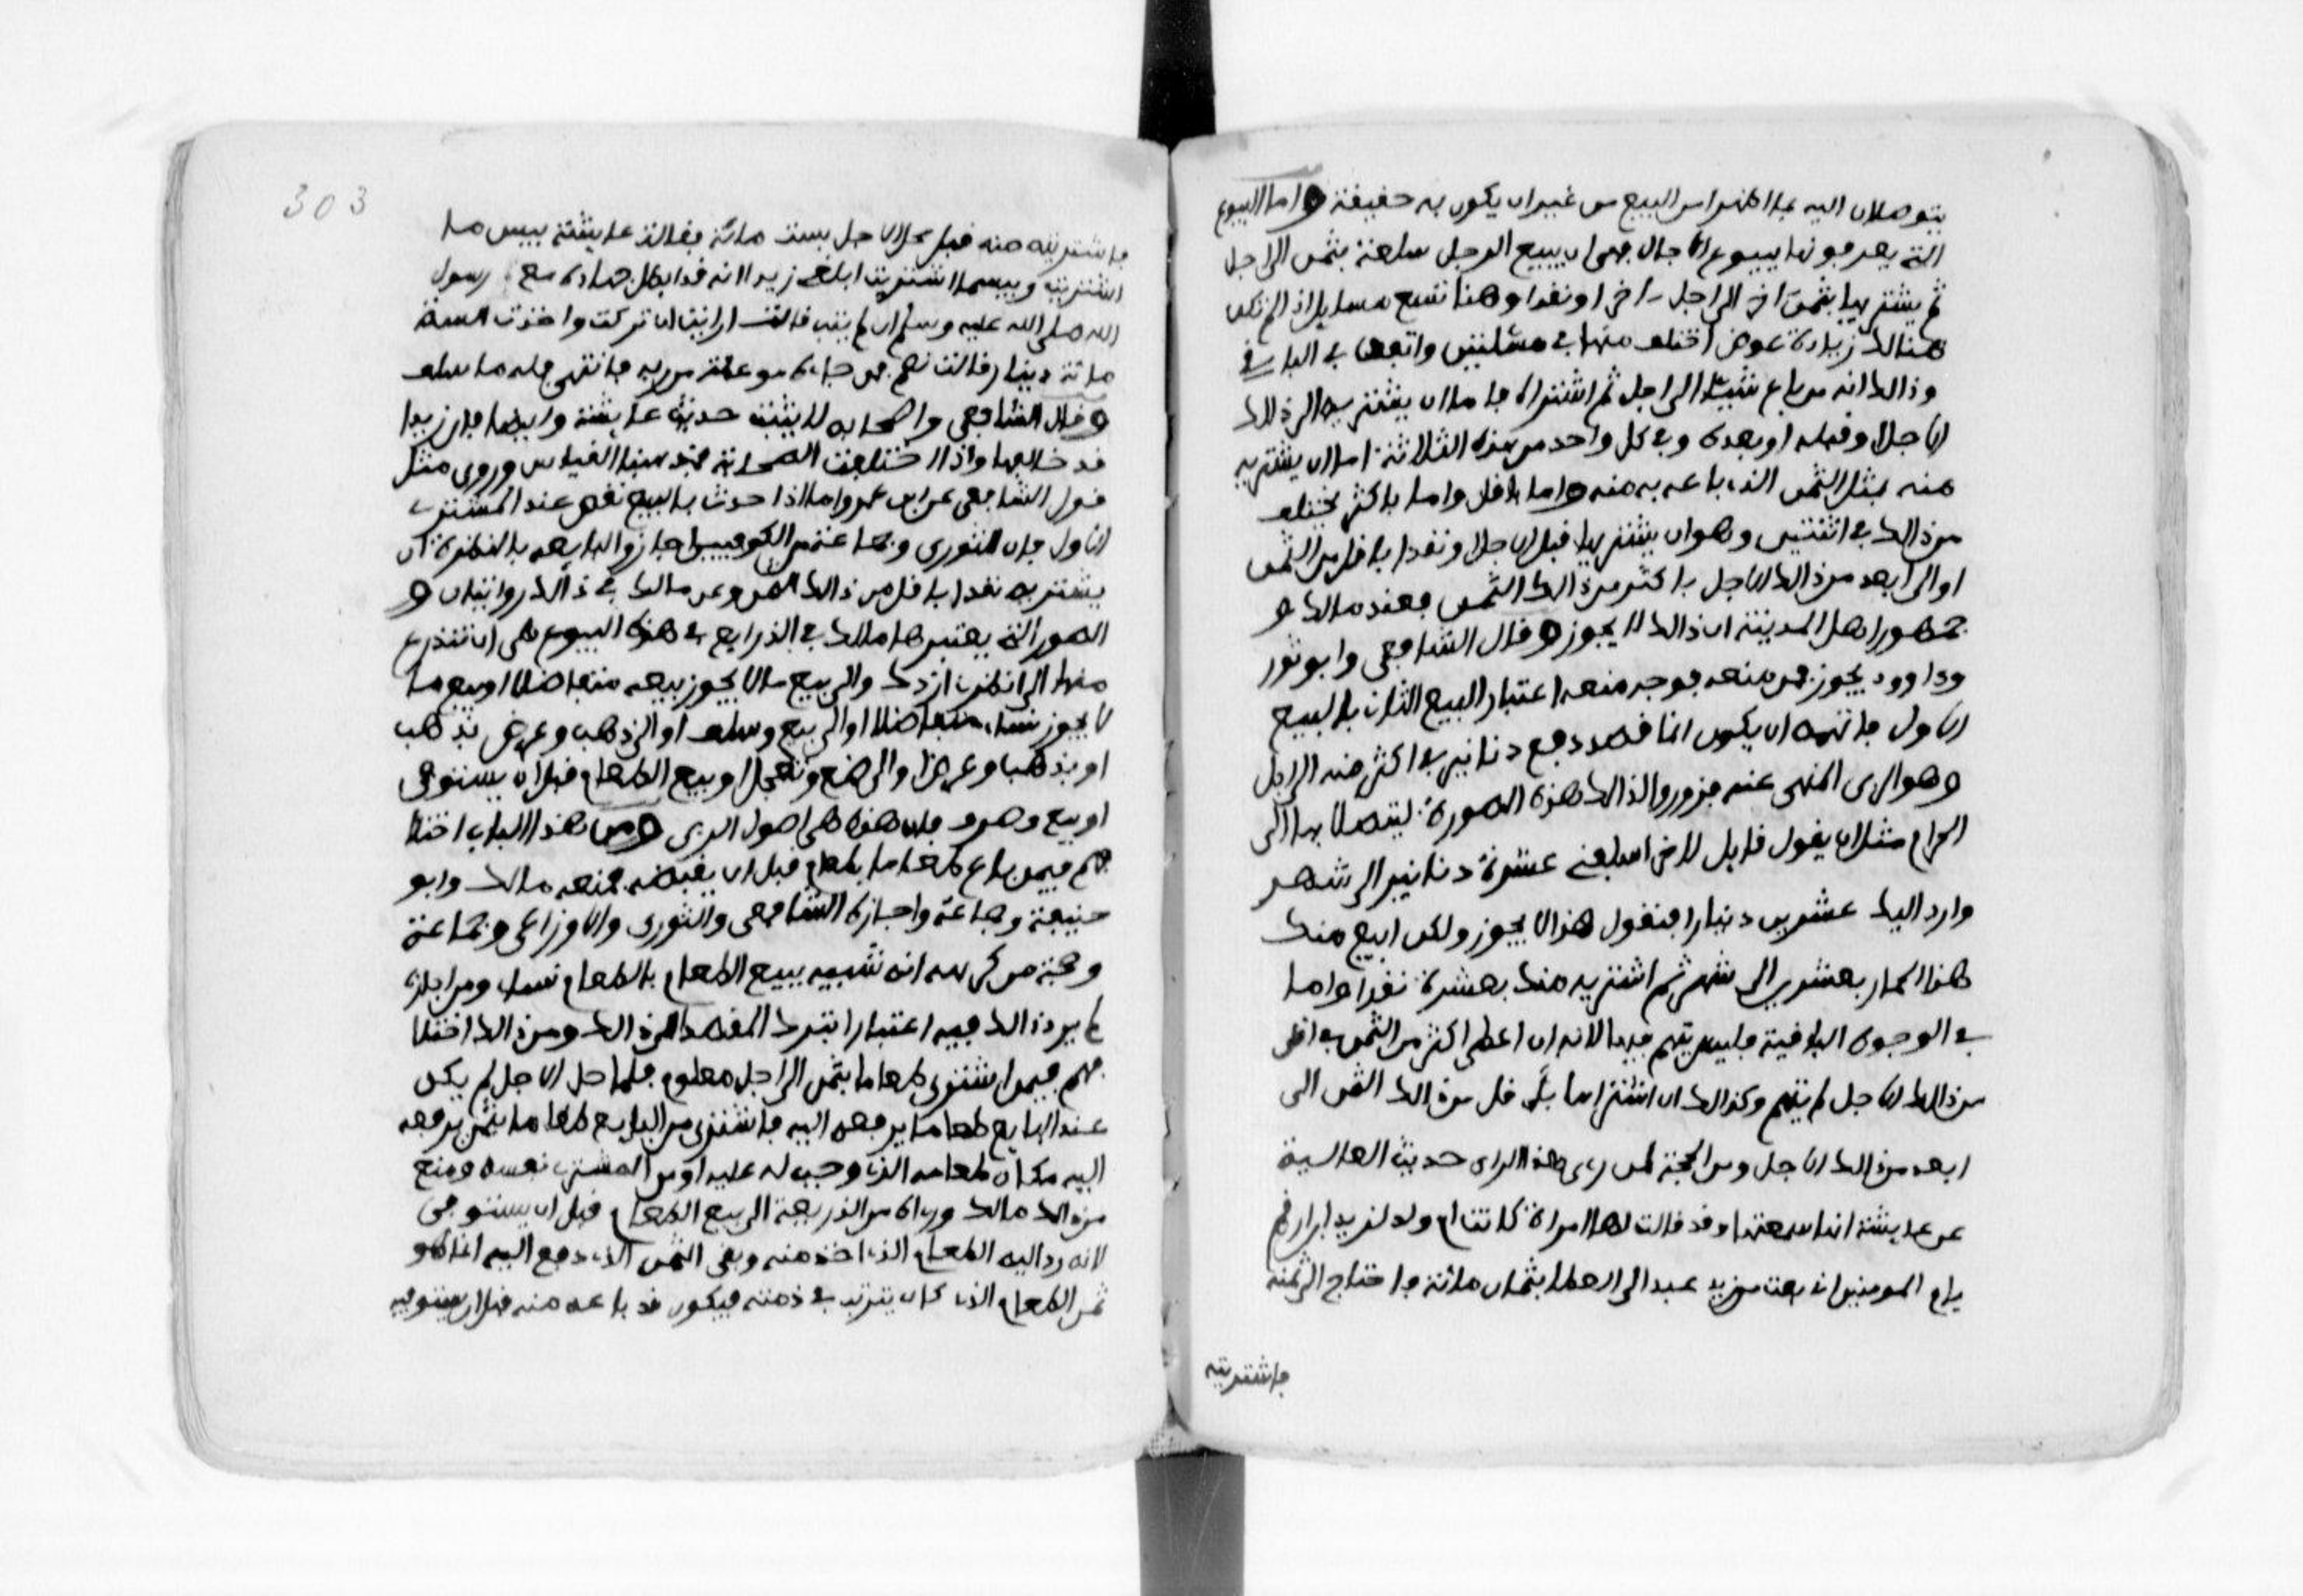 يتوصلان اليه بما اظهرا من البيع من غير ان يكون به حقيقة واما البيوع
التي يعرفونها ببيوع الاجال فهي ان يبيع الرجل سلعة بثمن الى اجل
ثم يشتريها بثمن اخر الى اجل اخر او نقدا وهنا تسع مسايل اذا لم تكن
هنالك زيادة عوض اختلف منها في مسئلتين واتفق في الباقي
وذالك انه من باع شيئا الى اجل ثم اشتراه فاما ان يشتريه الى ذلك
الاجل او قبله او بعده وفي كل واحد من هذه الثلاثة اما ان يشتريه
منه بمثل الثمن الذي باعه به منه واما باقل واما باكثر يختلف
من ذالك في اثنتين وهو ان يشتريها قبل الاجل ونقدا باقل من الثمن
او الى ابعد من ذالك الاجل باكثر من ذالك الثمن فعند مالك و
جمهور اهل المدينة ان ذالك لا يجوز وقال الشافعي وابو ثور
وداوود يجوز فمن منعه فوجه منعه اعتبار البيع الثاني بالبيع
الاول فاتهمه ان يكون انما قصد دفع دنانير في اكثر منه الى اجل
وهو الربى المنهى عنه فزوروا لذالك هذه الصورة ليتصلا بها الى
الحرام مثل ان يقول قايل لاخر اسلفني عشرة دنانير الى شهر
وارد اليك عشرين دينارا فنقول هذا لا يجوز ولكن ابيع منك
هذا الحمار بعشرين الى شهر ثم اشتريه منك بعشرة نقدا واما
في الوجوه الباقية فليس يتهم فيها لانه ان اعطى اكثر من الثمن في اقل
من ذالك الاجل لم يتهم وكذالك ان اشتراها باقل من ذالك الثمن الى
ابعد من ذالك الاجل ومن الحجة لمن رءى هذا الراى حديث العالية
عن عايشة انها سمعتها وقد قالت لها امراة كانت ام ولد لزيد ابن ارقم
يا ام المومنين اني بعت من زيد عبدا الى العطا بثمان مائة فاحتاج الى ثمنه
فاشتريته
303
فاشتريته منه قبل محل الاجل بست مائة فقالت عايشة بيس ما
اشتريت وبيسما اشتريت ابلغي زيدا انه قد ابطل جهاده مع رسول
الله صلى الله عليه وسلم ان لم يتب قالت ارايت ان تركت واخذت الستة
مائة دينار قالت نعم فمن جاءه موعظة من ربه فانتهى فله ما سلف
وقال الشافعي واصحابه لا يثبت حديث عايشة وايضا فان زيدا
قد خالفها واذا اختلفت الصحابة فمذهبنا القياس وروى مثل
قول الشافعي عن ابن عمر واما اذا حدث بالبيع نقص عند المشترى
الاول فان الثورى وجماعة من الكوفيين اجازوا لبايعه بالنظرة ان
يشتريه نقدا باقل من ذالك الثمن وعن مالك في ذالك روايتان و
الصور التي يعتبرها مالك في الذرايع في هذه البيوع هي ان يتذرع
منها الى انظرني ازدك والى بيع ما لا يجوز بيعه متفاضلا او بيع ما
لا يجوز نساء متفاضلا او الى بيع وسلف او الى ذهب وعرض بذهب
او بذهب وعرض او الى ضع وتعجل او بيع الطعام قبل ان يستوفى
او بيع وصرف فان هذه هي اصول الربى ومن هذا الباب اختلا
فهم فيمن باع طعاما بطعام قبل ان يقبضه فمنعه مالك وابو
حنيفة وجماعة واجازه الشافعي والثورى والاوزاعي وجماعة
وحجة من كرهه انه شبيه ببيع الطعام بالطعام نساء ومن اجازه
لم ير ذالك فيه اعتبارا بترك القصد الى ذالك ومن ذالك اختلا
فهم فيمن اشترى طعاما بثمن الى اجل معلوم فلما حل الاجل لم يكن
عند البايع طعام يدفعه اليه فاشترى من البايع طعاما بثمن يدفعه
اليه مكان طعامه الذي وجب له عليه او من المشترى نفسه ومنع
من ذالك مالك وراه من الذريعة الى بيع الطعام قبل ان يستوفى
لانه رد اليه الطعام الذي اخذ منه وبقى الثمن الذي دفع اليه انما هو
ثمن الطعام الذي كان يترتب في ذمته فيكون قد باعه منه قبل ان يستوفيه